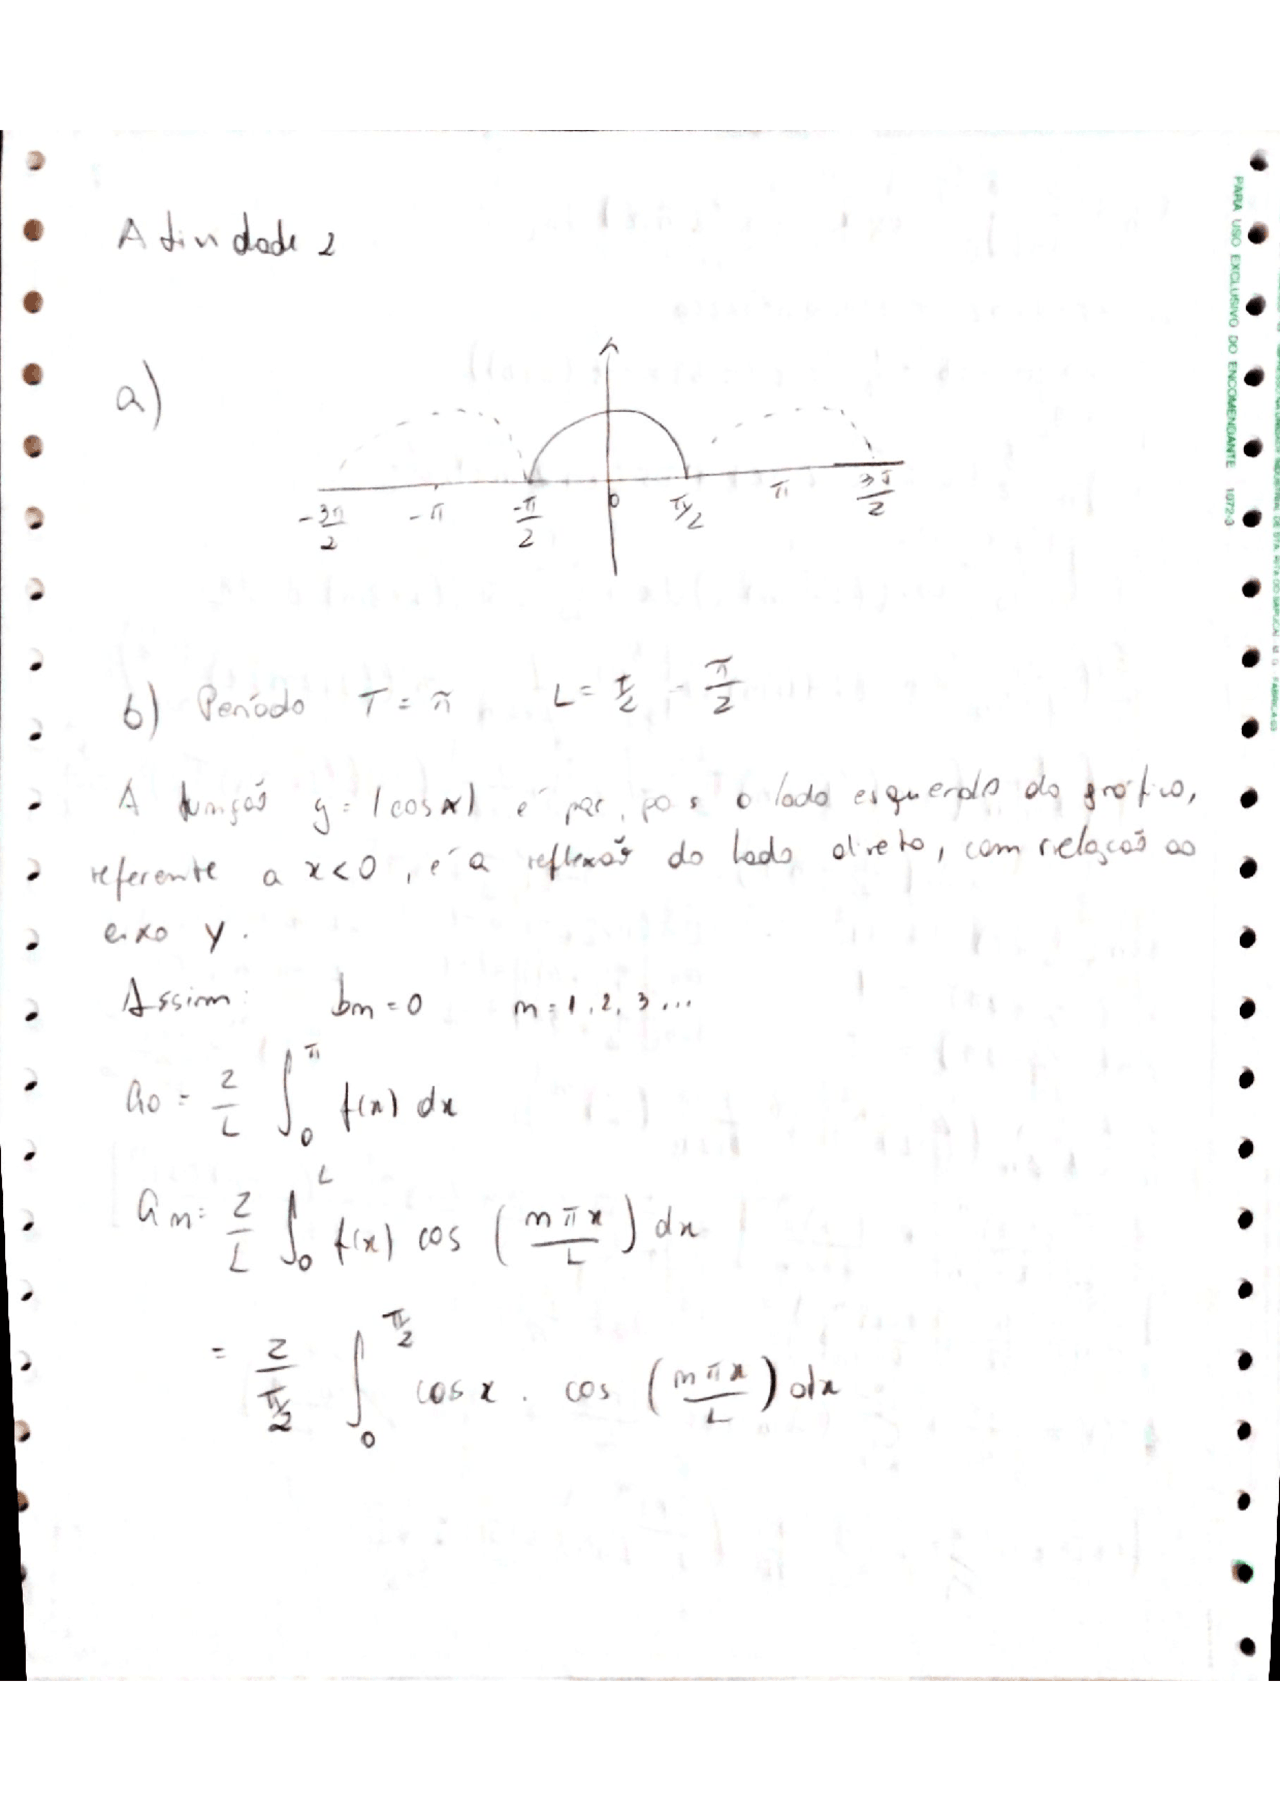 Atividade 2
a)
-3π/2 -π -π/2 0 π/2 π 3π/2
b) Período T = π L = T/2 = π/2
A função y = |cos x| é par, pois o lado esquerdo do gráfico,
referente a x < 0, é a reflexão do lado direto, com relação ao
eixo y.
Assim: bn = 0 n = 1, 2, 3 ...
a0 = 2/L ∫_0^π f(x) dx
an = 2/L ∫_0^L f(x) cos (nπx/L) dx
= 2/(π/2) ∫_0^(π/2) cos x . cos (nπx/L) dx
PARA USO EXCLUSIVO DO ENCOMENDANTE 1072-3